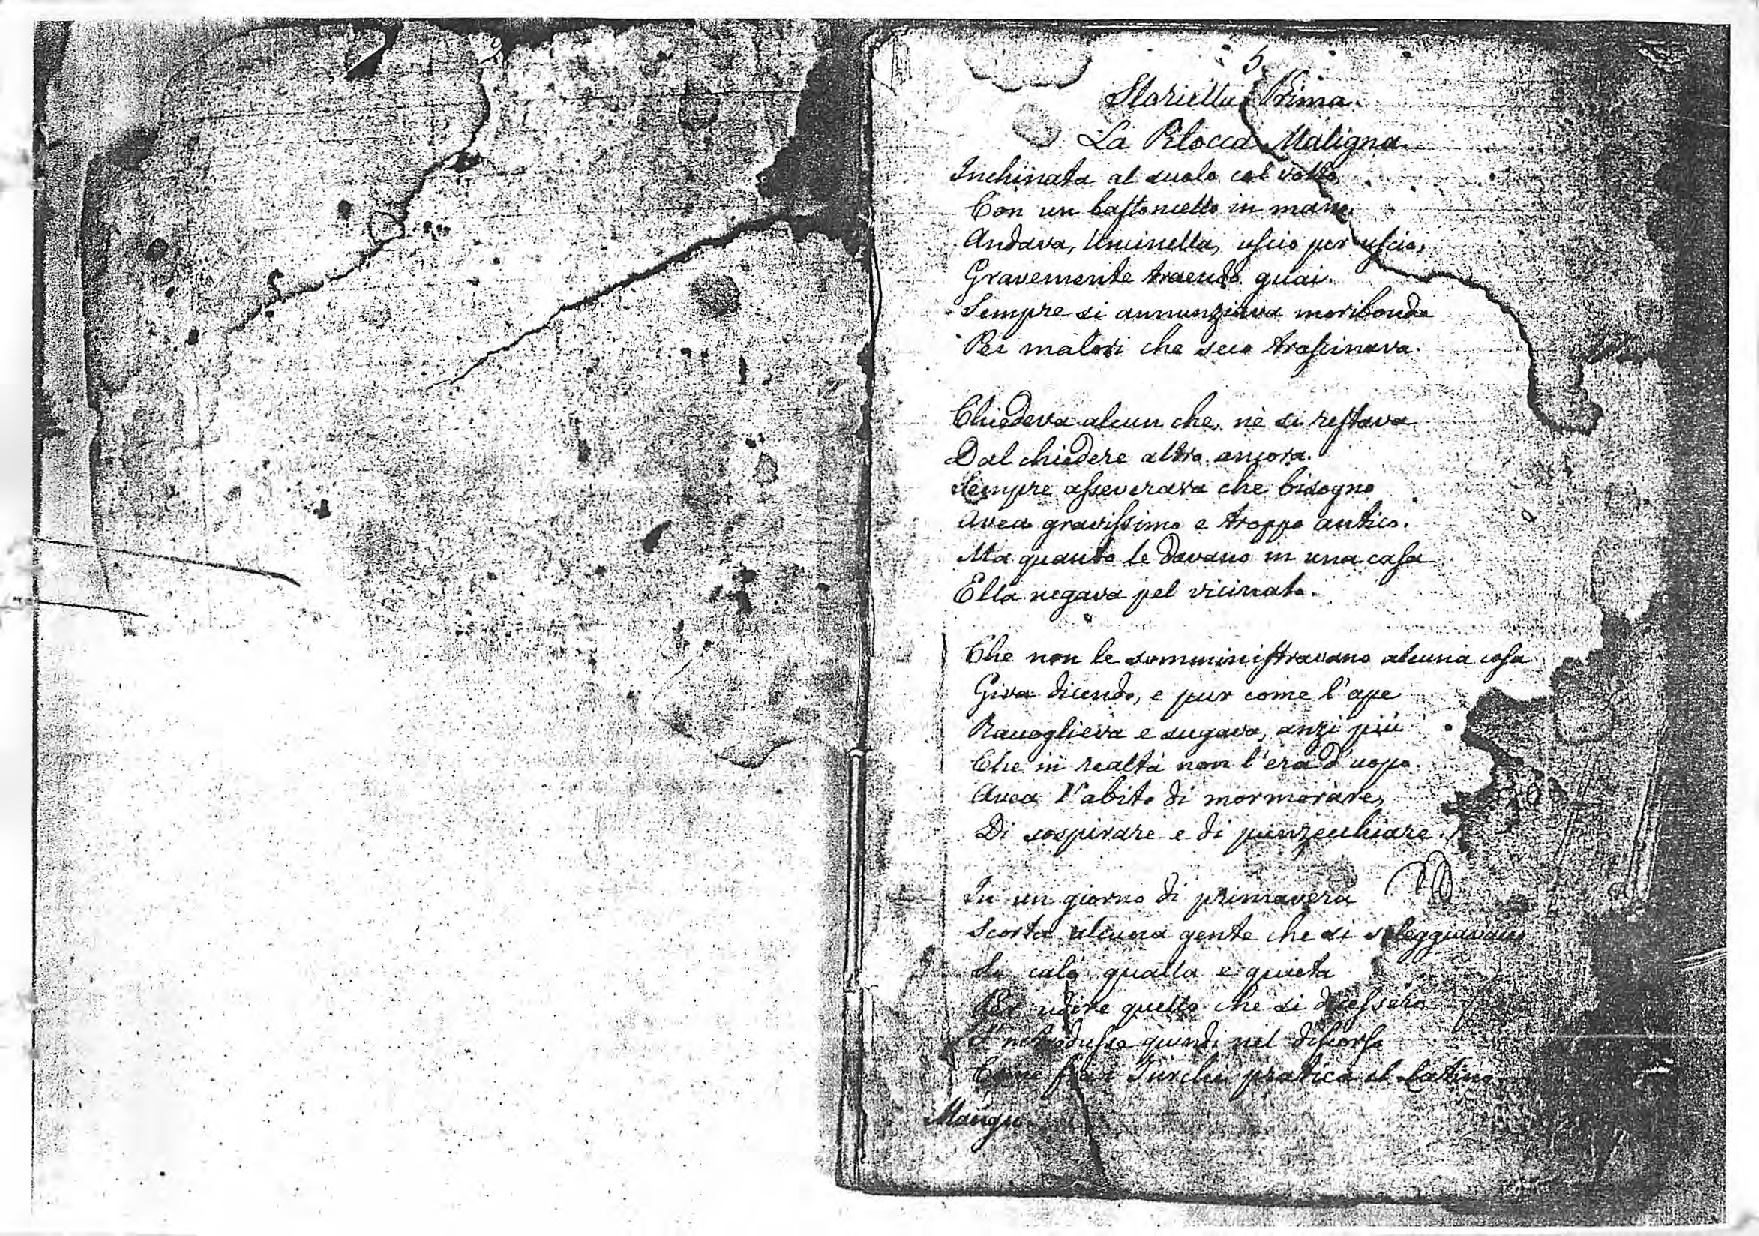 5
Storiella Prima.
La Pitocca Maligna.
Inchinata al suolo col volto
Con un bastoncello in mano
Andava, Uncinella, uscio per uscio,
Gravemente traendo guai.
Sempre si annunziava moribonda
Pei malori che seco trascinava.
Chiedeva alcun che, nè si restava
Dal chiedere altro ancora.
Sempre asseverava che bisogno
Avea gravissimo e troppo antico.
Ma quanto le davano in una casa
Ella negava pel vicinato.
Che non le somministravano alcuna cosa
Giva dicendo, e pur come l'ape
Raccoglieva e sugava, anzi più
Che in realtà non l'era d'uopo.
Avea l'abito di mormorare,
Di sospirare e di punzecchiare.
In un giorno di primavera
Scorta alcuna gente che si soleggiavano
Si calò quatta e quieta
Per udire quello che si dicessero
S'introdusse quindi nel discorso
Come fra i Turchi pratica il Latino.